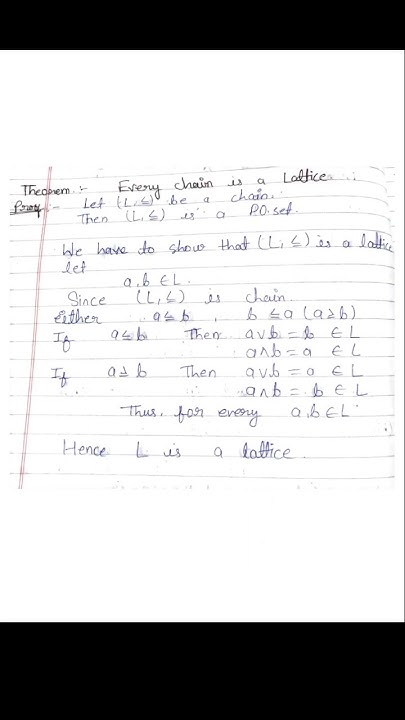 Theorem:- Every chain is a Lattice.
Proof:- Let (L,≤) be a chain.
Then (L,≤) is a PO.set.
We have to show that (L,≤) is a lattice
let
a,b ∈ L.
Since (L,≤) is chain.
Either a≤b, b≤a (a≥b)
If a≤b Then a∨b = b ∈ L
a∧b = a ∈ L
If a≥b Then a∨b = a ∈ L
a∧b = b ∈ L
Thus, for every a,b ∈ L
Hence L is a lattice.